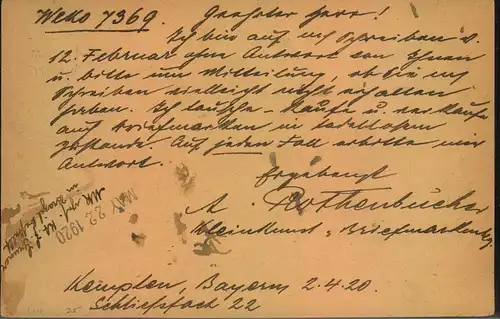 Weko 7369. Geehrter Herr!
Ich bin auf m/ Schreiben v.
12. Februar ohne Antwort von Ihnen
u. bitte um Mitteilung, ob Sie m/
Schreiben vielleicht nicht erhalten
haben. Ich tausche - Kaufe u. verkaufe
auf Briefmarken in tadellosem
Zustande. Auf jeden Fall erbitte mir
Antwort.
Ergebenst
A. Rothenbücher
Kleinkunst u. Briefmarken
Kempten, Bayern 2.4.20
Schliessfach 22
MAI
22 1920